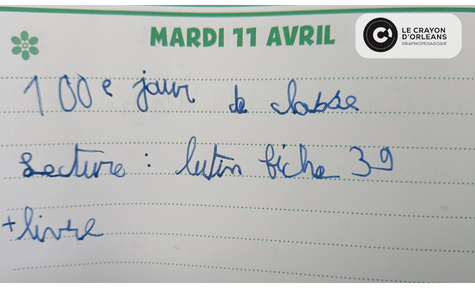 MARDI 11 AVRIL
LE CRAYON
D'ORLEANS
GRAPHOPEDAGOGIE
100e jour de classe
Lecture : lutin fiche 39
+ livre